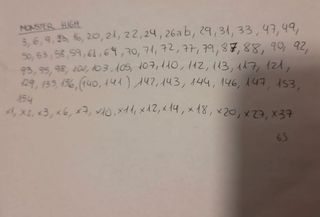 MONSTER HIGH
3, 6, 9, 13, 16, 20, 21, 22, 24, 26ab, 29, 31, 33, 47, 49,
50, 53, 58, 59, 61, 64, 70, 71, 72, 77, 79, 87, 88, 90, 92,
93, 95, 98, 102, 103, 105, 107, 110, 112, 113, 117, 121,
129, 135, 136, (140, 141), 142, 143, 144, 146, 147, 153,
154
x1, x2, x3, x6, x7, x10, x11, x12, x14, x18, x20, x27, x37
63